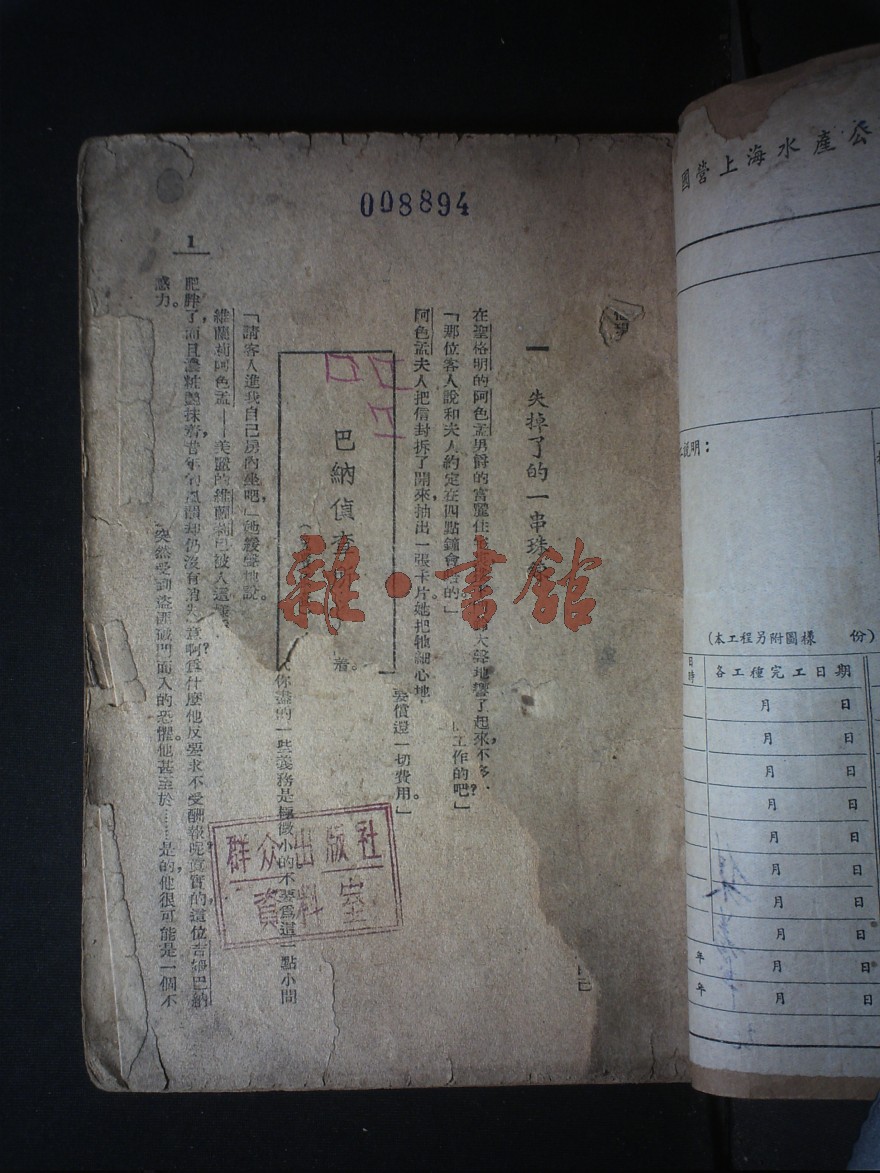 008894
1
一 失掉了的一串珠
在聖格明的阿色孟男爵的富麗住
大聲地響了起來,不多
「那位客人說和夫人約定在四點鐘會晤的」
工作的吧?」
阿色孟夫人把信封拆了開來,抽出一張卡片,她把牠細心地
要償還一切費用。」
巴納偵查
著。
你盡的一些義務是極微小的不要爲這一點小間
「請客人進我自己房內坐吧,」她緩聲地說。
維蘭莉阿色孟——美麗的維蘭莉已被人這樣
肥胖了,而且濃粧艷抹,
意啊?爲什麼他反要求不受酬報呢?真實的,這位吉姆巴納
感力。
突然受到盜匪破門而入的恐懼。他甚至於……是的,他很可能是一個不
群众出版社
資料室
雜·書館
國營上海水產公
說明:
(本工程另附圖樣 份)
日時
各工種完工日期
月 日
月 日
月 日
月 日
月 日
月 日
月 日
月 日
年 月 日
年 月 日